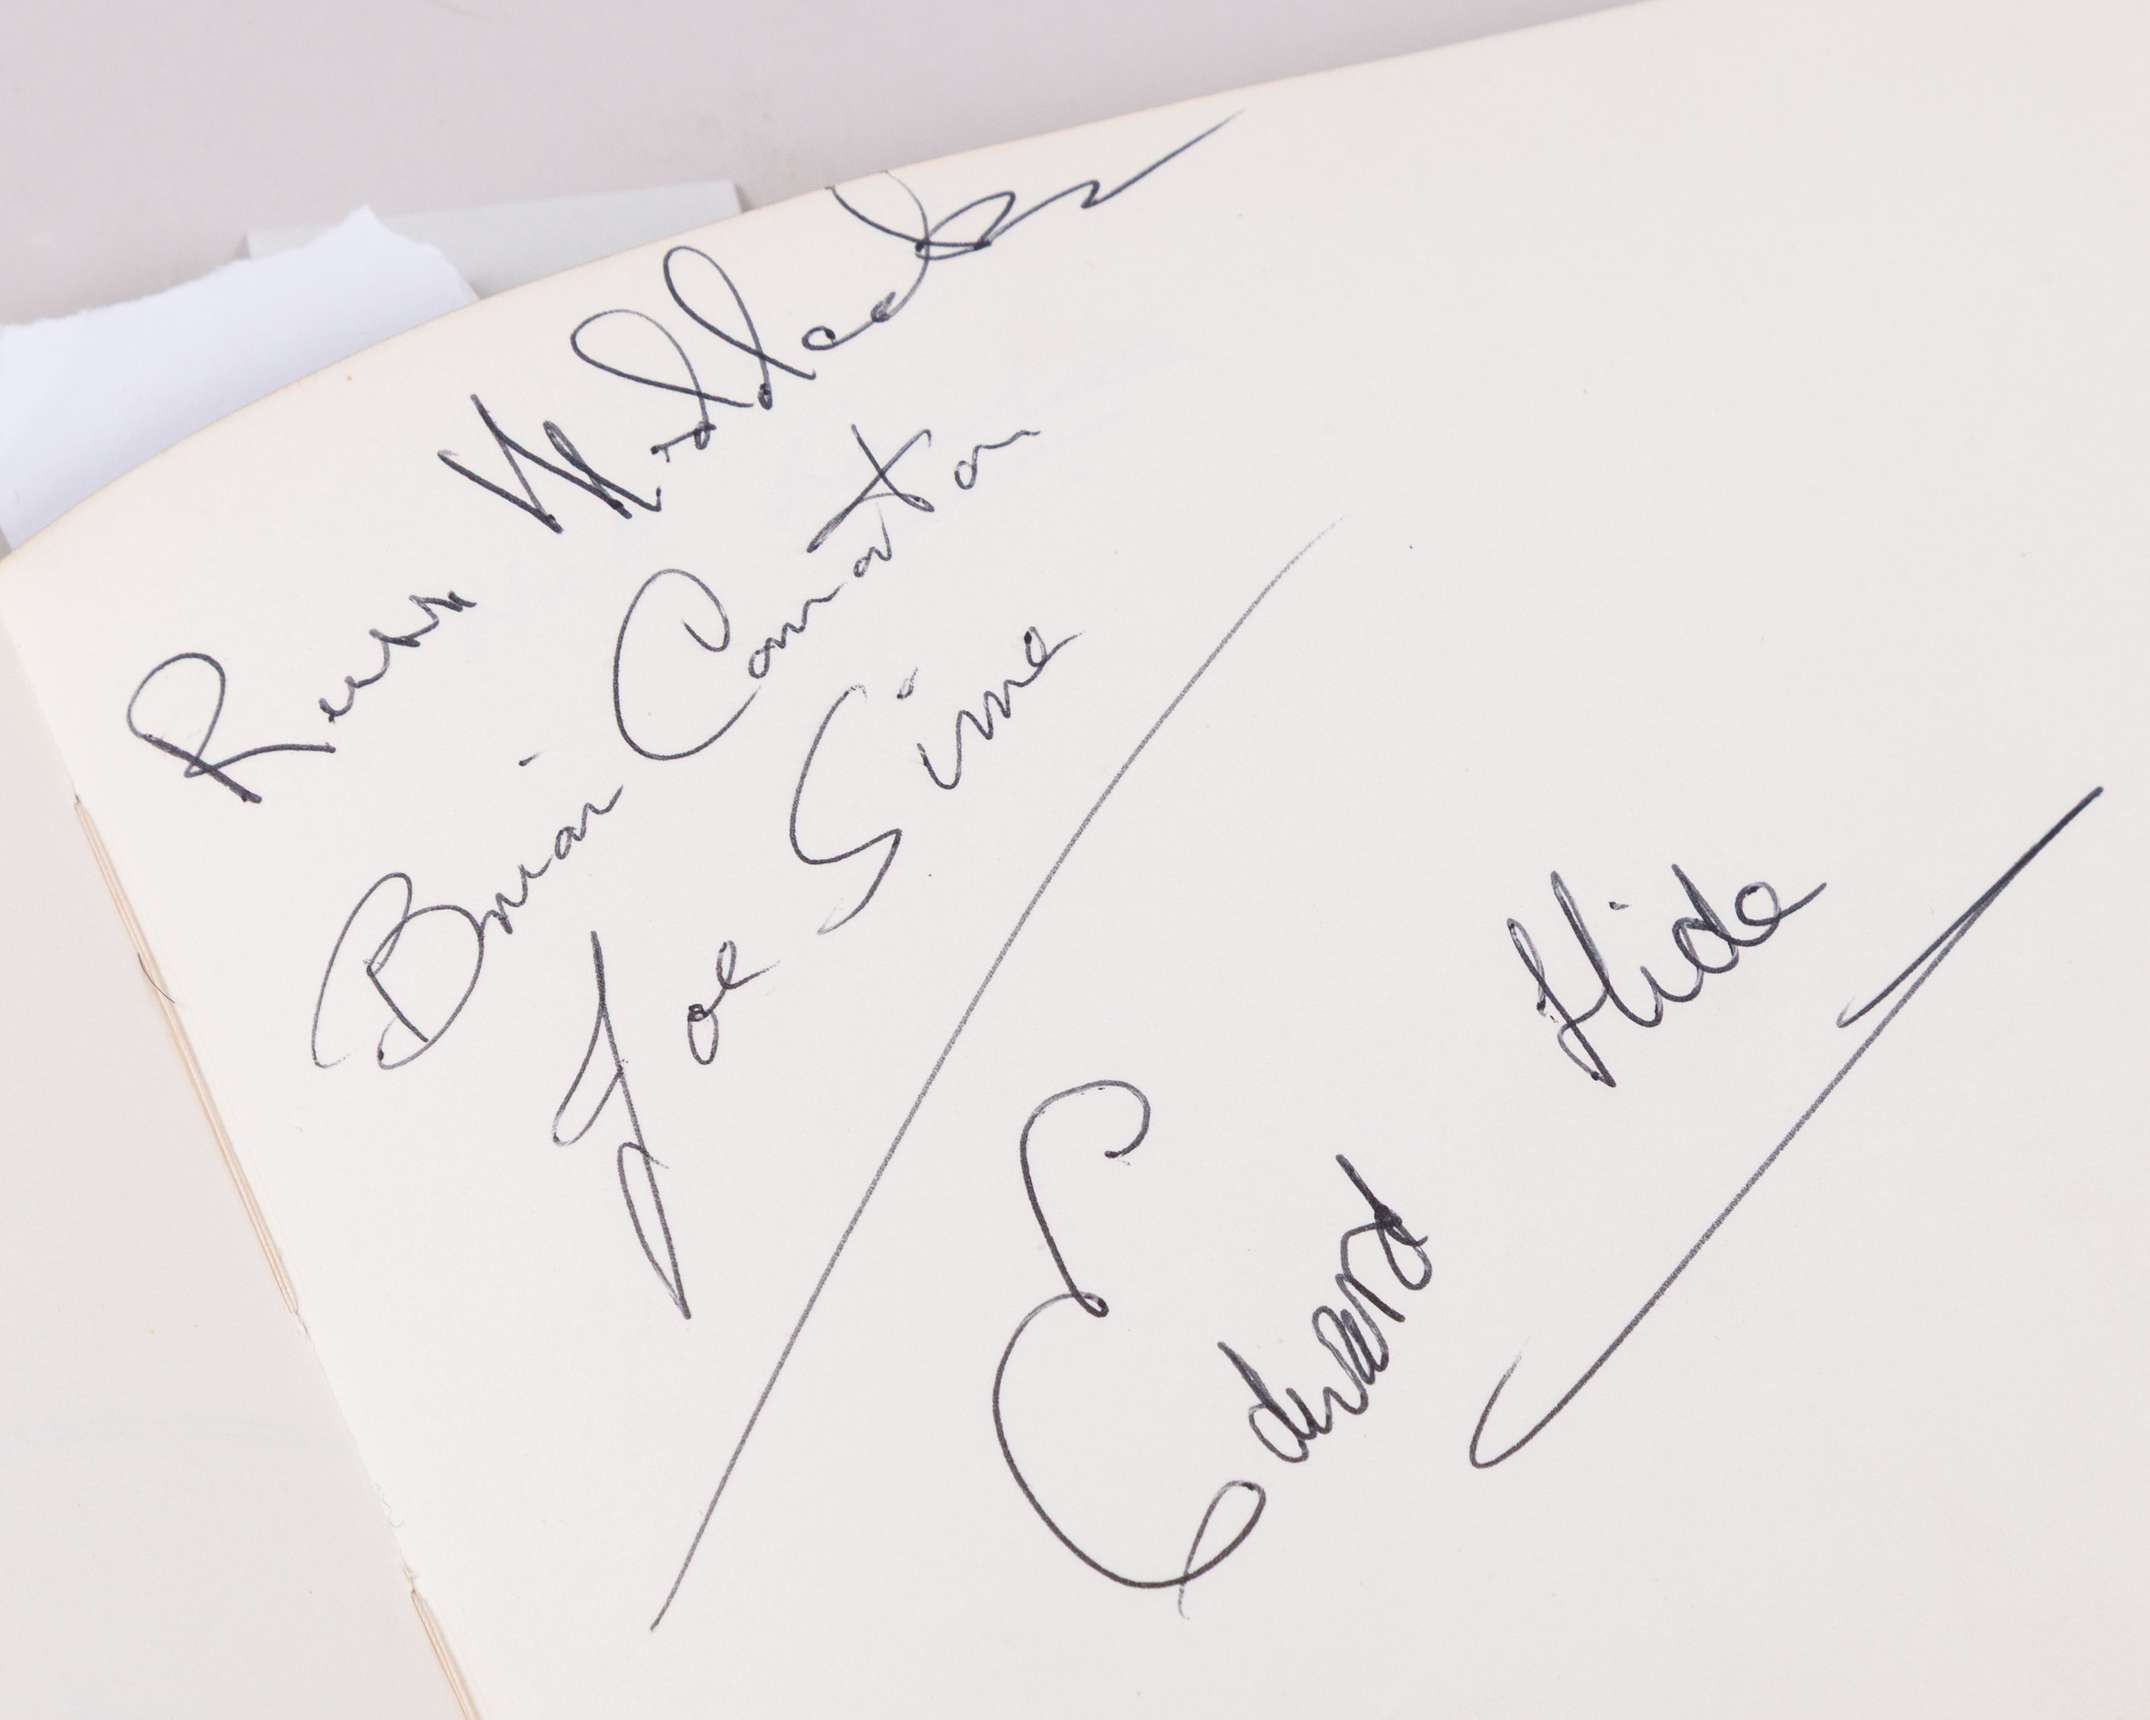 Russ Maddock
Brian Connorton
Joe Sime
Edward Hide